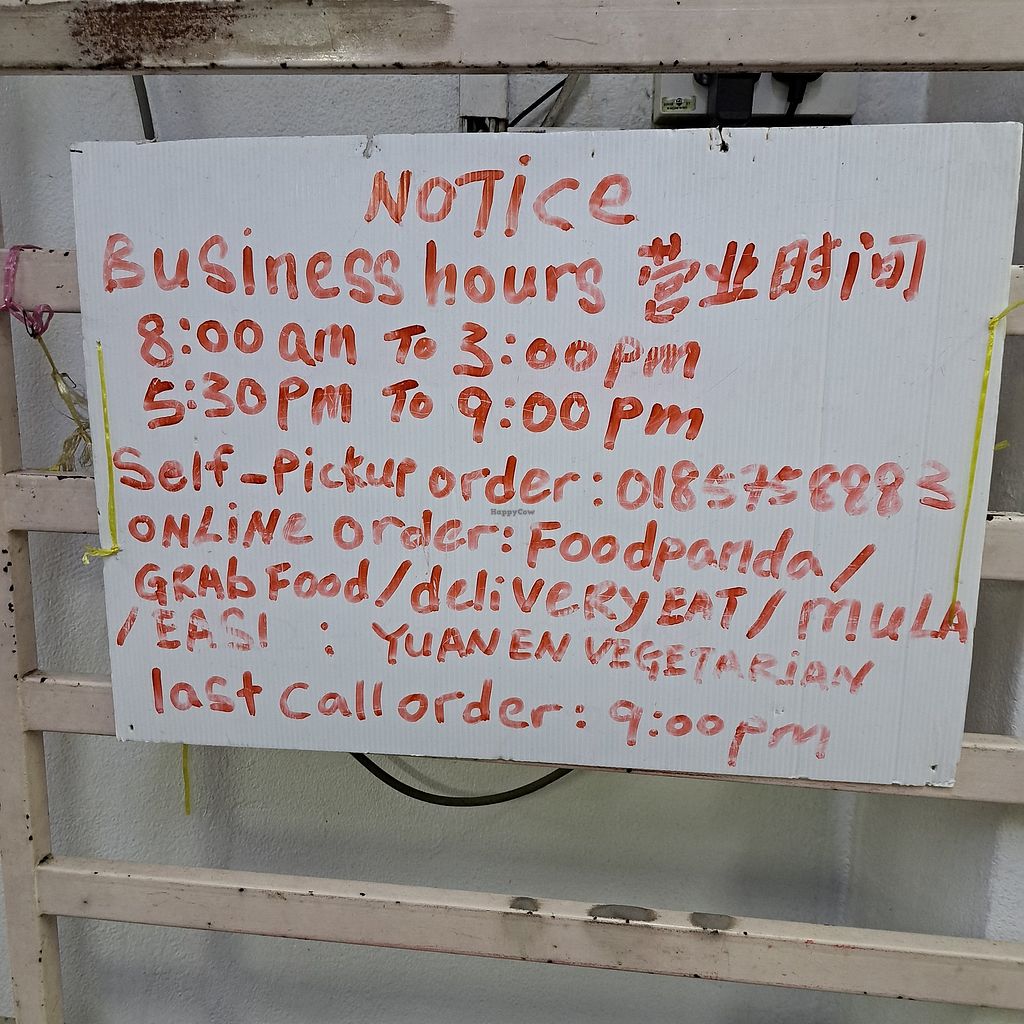 NOTICE
Business hours 营业时间
8:00am To 3:00pm
5:30pm To 9:00pm
Self-Pickup order: 0185758883
ONLINE order: Foodpanda/
GRAb Food/deliveRyEAT/muLA
/EASI : YUAN EN VEGETARIAN
last call order: 9:00pm
HappyCow